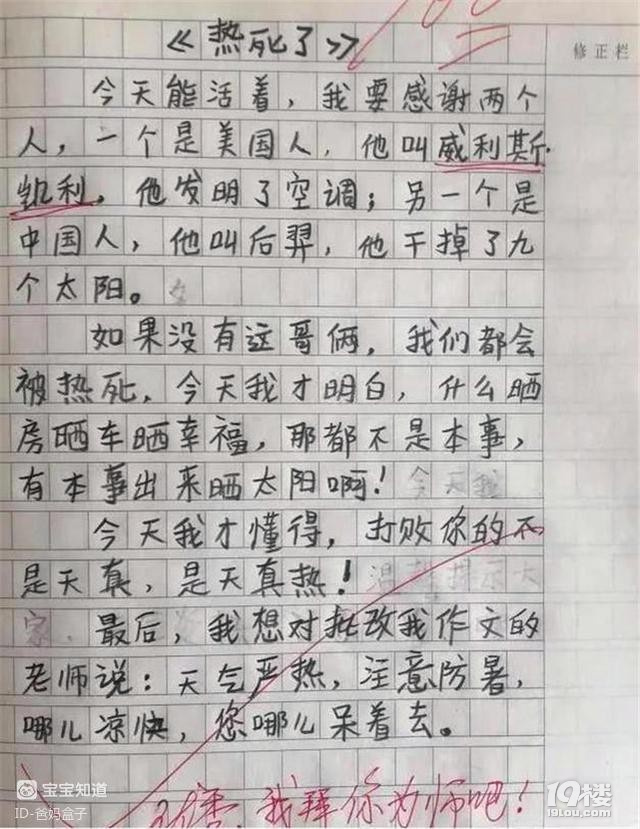 《热死了》
修正栏
今天能活着，我要感谢两个
人，一个是美国人，他叫威利斯·
凯利，他发明了空调；另一个是
中国人，他叫后羿，他干掉了九
个太阳。
如果没有这哥俩，我们都会
被热死，今天我才明白，什么晒
房晒车晒幸福，那都不是本事，
有本事出来晒太阳啊！今天我
今天我才懂得，打败你的不
是天真，是天真热！温馨提示大
家，最后，我想对批改我作文的
老师说：天气严热，注意防暑，
哪儿凉快，您哪儿呆着去。
我拜你为师吧！
宝宝知道
ID-爸妈盒子
19楼
19lou.com